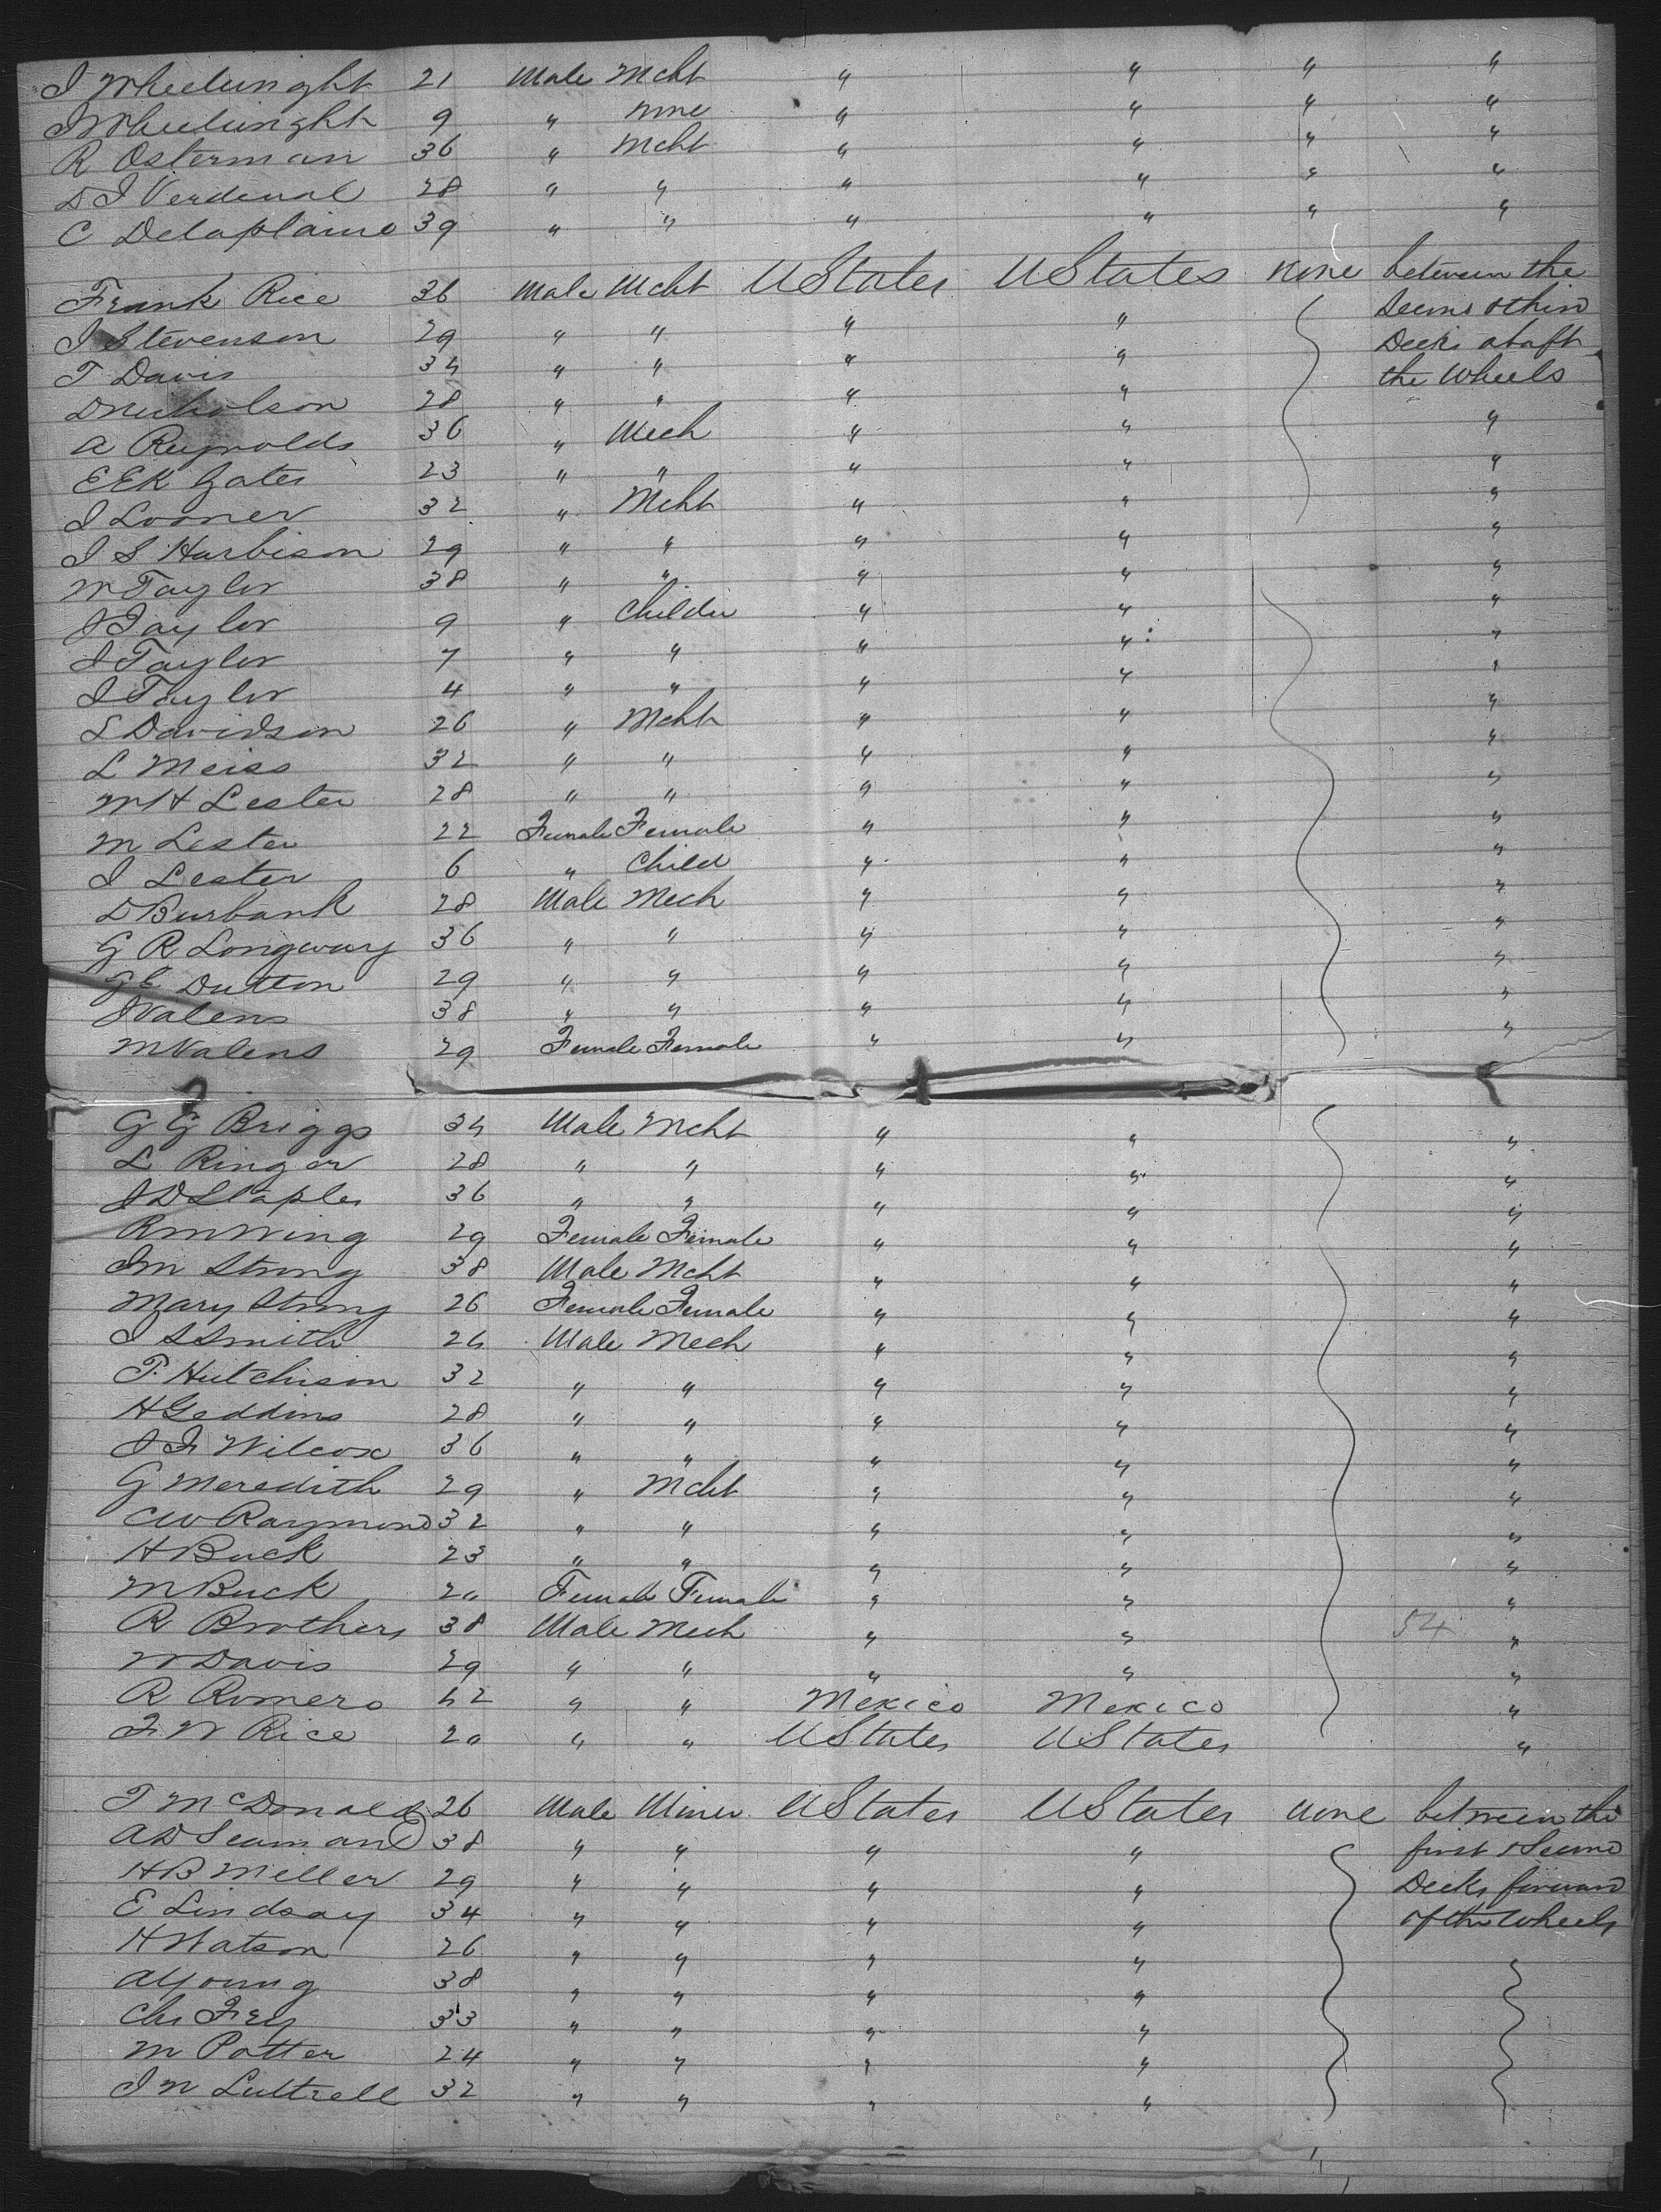 J Wheelwright 21 Male Mcht " " " "
J Wheelwright 9 " none " " " "
R Osterman 36 " Mcht " " " "
D J Verdenal 28 " " " " " "
C Delaplaine 39 " " " " " "
Frank Rice 36 Male Mcht U States U States none between the
J Stevenson 29 " " " " Second & third
T Davis 34 " " " " Decks abaft
D Nicholson 28 " " " " the Wheels
A Reynolds 36 " Mech " " "
E E K Gates 23 " " " " "
J Looner 32 " Mcht " " "
J S Harbison 29 " " " " "
W Taylor 38 " " " " "
J Taylor 9 " Childn " " "
J Taylor 7 " " " " "
J Taylor 4 " " " " "
S Davidson 26 " Mcht " " "
L Meiss 32 " " " " "
W H Lester 28 " " " " "
M Lester 22 Female Female " " "
J Lester 6 " Child " " "
D Burbank 28 Male Mech " " "
G R Longway 36 " " " " "
G E Dutton 29 " " " " "
J Valens 38 " " " " "
M Valens 29 Female Female " " "
G G Briggs 34 Male Mcht " " "
L Ringor 28 " " " " "
J D Staples 36 " " " " "
R M Wing 29 Female Female " " "
J M Strong 38 Male Mcht " " "
Mary Strong 26 Female Female " " "
J S Smith 24 Male Mech " " "
P. Hutchison 32 " " " " "
H Geddins 28 " " " " "
J F Wilcox 36 " " " " "
G Meredith 29 " Mcht " " "
C W Raymond 32 " " " " "
H Buck 23 " " " " "
M Buck 20 Female Female " " "
R Brothers 38 Male Mech " " 54 "
W Davis 29 " " " " "
R Romero 42 " " Mexico Mexico "
F W Rice 20 " " U States U States "
T McDonald 26 Male Miner U States U States none between the
A D Seamand 38 " " " " first & Second
H B Meller 29 " " " " Decks forward
E Lindsay 34 " " " " of the Wheels
H Watson 26 " " " "
A Young 38 " " " "
Chs Frey 33 " " " "
M Potter 24 " " " "
J N Luttrell 32 " " " "